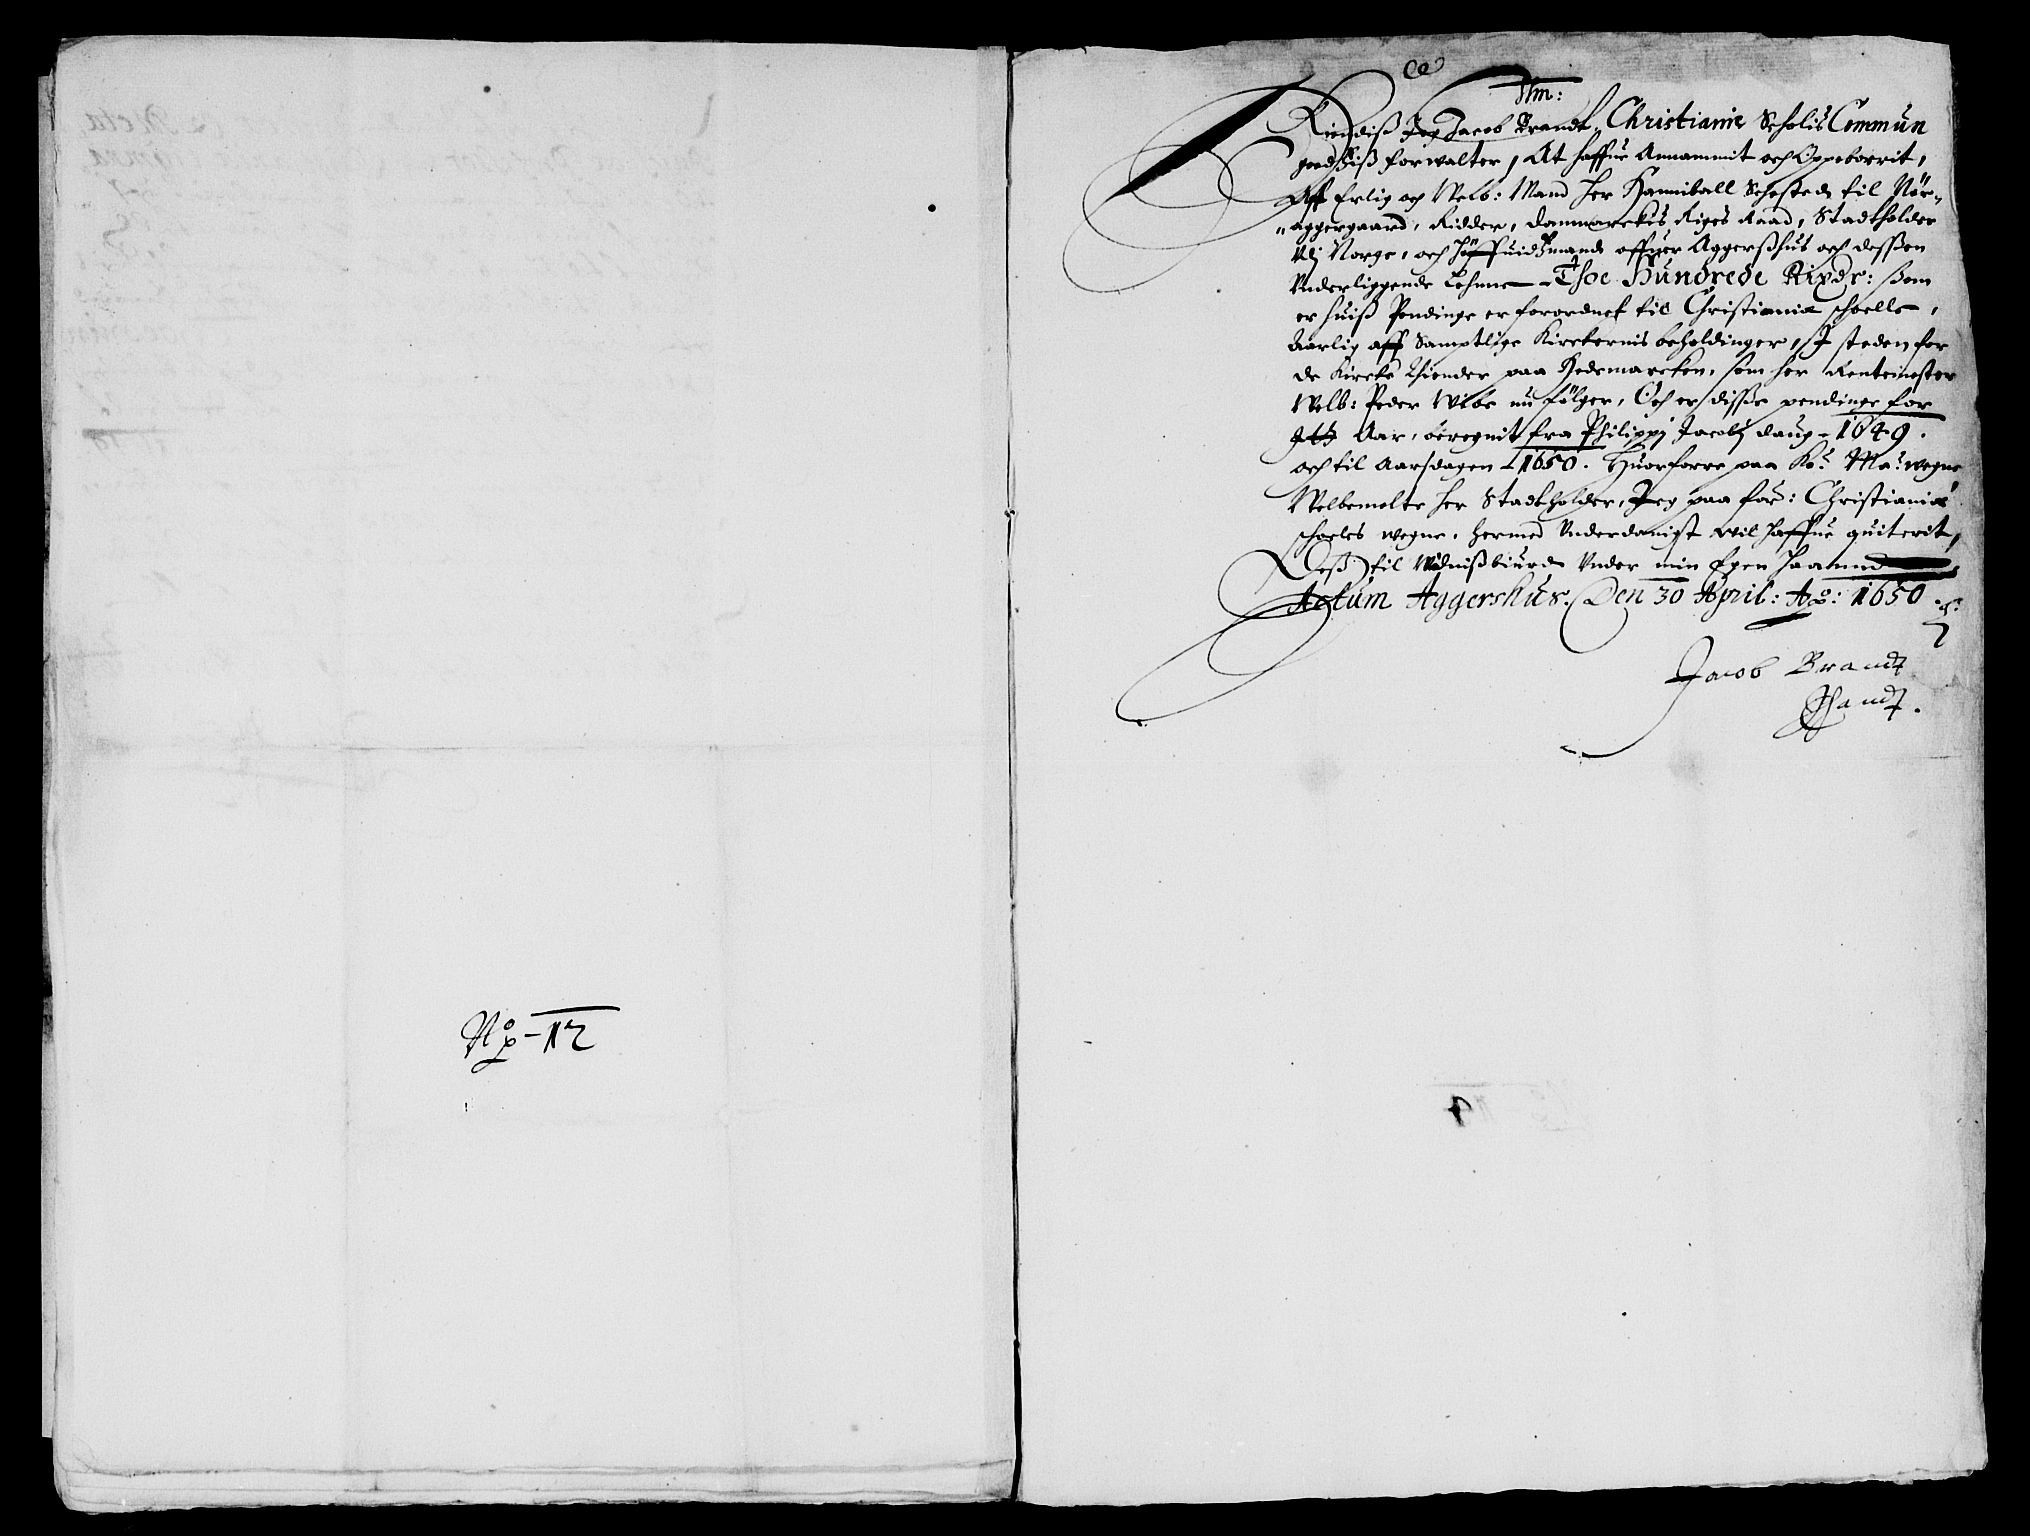 No - 12
Nm:
Kiendiß Jeg Jacob Brandt, Christianiæ Scholis Commun
goedtziß forwalter, At haffue Annammit och Oppeborrit,
Aff Erlig och Welb: Mand Her Hanniball Sehested til Nör-
aggergaard, Ridder, Danmarckes Riges Raad, Stadtholder
Udj Norge, och Höffuidtzmand offuer Aggershus och dessen
Underliggende Lehne - Thoe Hundrede Rixdr: som
er huiß Pendinge er forordnet til Christianiæ schoelle,
Aarlig aff Samptlige Kirckernis beholdinger, J steden for
de Kircke Thiender paa Hedemarcken, som her Renteimester
Welb: Peder Wibe nu fölger, Och er disse pendinge for
Aar, beregnit fra Philippj Jacobj daug - 1649.
och til Aarsdagen - 1650. Huorforre paa Ko: Ma: wegne
Welbemelte Her Stadtholder, Jeg paa for: Christianiæ
schoeles wegne, hermed Underdanigst wil haffue quiterit,
Deß til Widnißbiurd Under min Egen Haannd
Actum Aggershus. Den 30 April: Ao: 1650
Jacob Brandt
Handt.